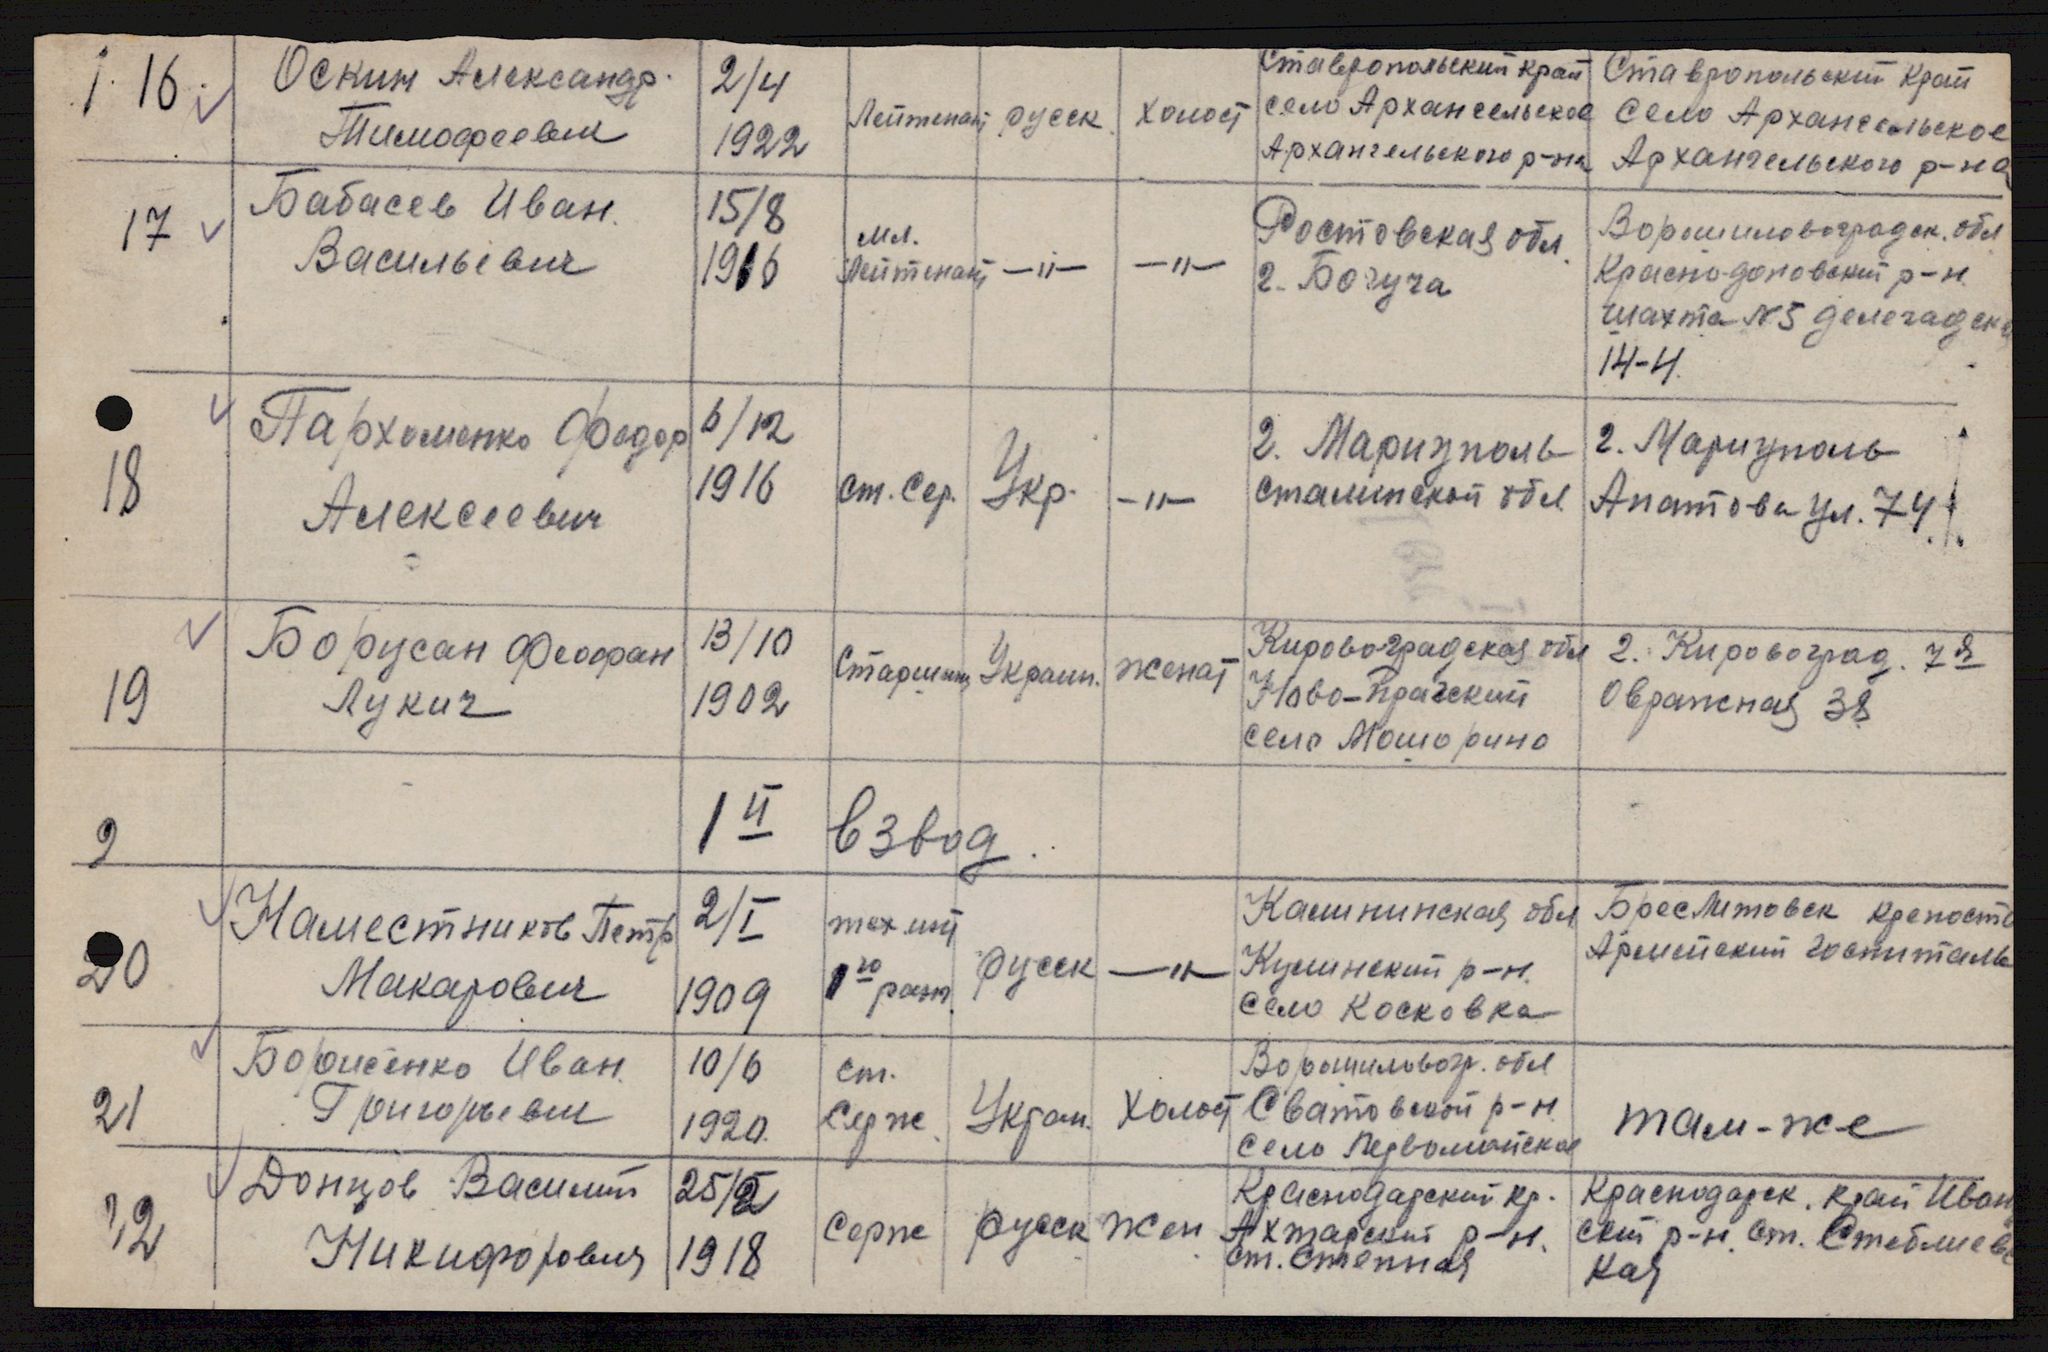 1. 16. Оскин Александр 2/4 Лейтенант русск. холост Ставропольский край Ставропольский край
Тимофеевич 1922 село Архангельское село Архангельское
Архангельского р-на Архангельского р-на
17 Бабасев Иван 15/8 мл. Ростовская обл. Ворошиловоградск. обл
Васильевич 1916 Лейтенант —"— —"— г. Богуча Краснодоновский р-н
шахта №5
14-4.
18 Пархоменко Федор 6/12 г. Мариуполь г. Мариуполь
Алексеевич 1916 ст. сер. Укр. —"— Сталинской обл Апатова ул. 74
19 Борусан Феофан 13/10 Старшина Украин. женат Кировоградская обл г. Кировоград. 7я
Лукич 1902 Ново-Прагский Овражная 38
село Мошорино
2 1й взвод.
20 Наместников Петр 2/I тех.инт Калининская обл Брес Литовск крепость
Макарович 1909 1го ранг русск —"— р-н. Армейский госпиталь
село Косковка
21 Борисенко Иван 10/6 ст. Ворошиловогр. обл
Григорьевич 1920. Серж. Украин. Холост Сватовской р-н там-же
село Первомайское
22 Донцов Василий 25/2 Серж русск Жен Краснодарский кр. Краснодарск. край Иван
Никифорович 1918 Ахтарский р-н. ский р-н. ст. Стеблиевс
ст. Степная кая